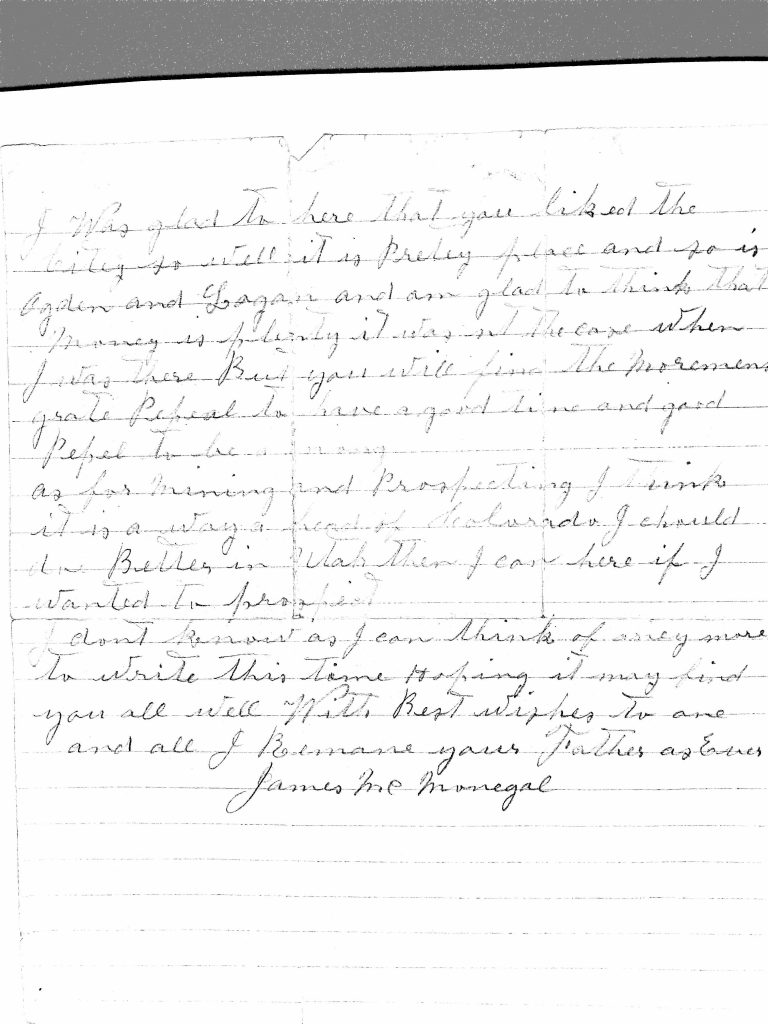 I Was glad to here that you liked the
Citey so well it is Pretey place and so is
Ogden and Logan and am glad to think that
Money is plenty it was nt the case when
I was there But you will find the Moremens
grate Pepeal to have a good time and good
Pepel to be a mong
as for Mining and Prospecting I think
it is a way a head of Colorado I should
due Better in Utah then I can here if I
wanted to prospect
I dont know as I can think of aney more
to write this time Hoping it may find
you all well With Best wishes to one
and all I Remane your Father as Ever
James Mc Monegal